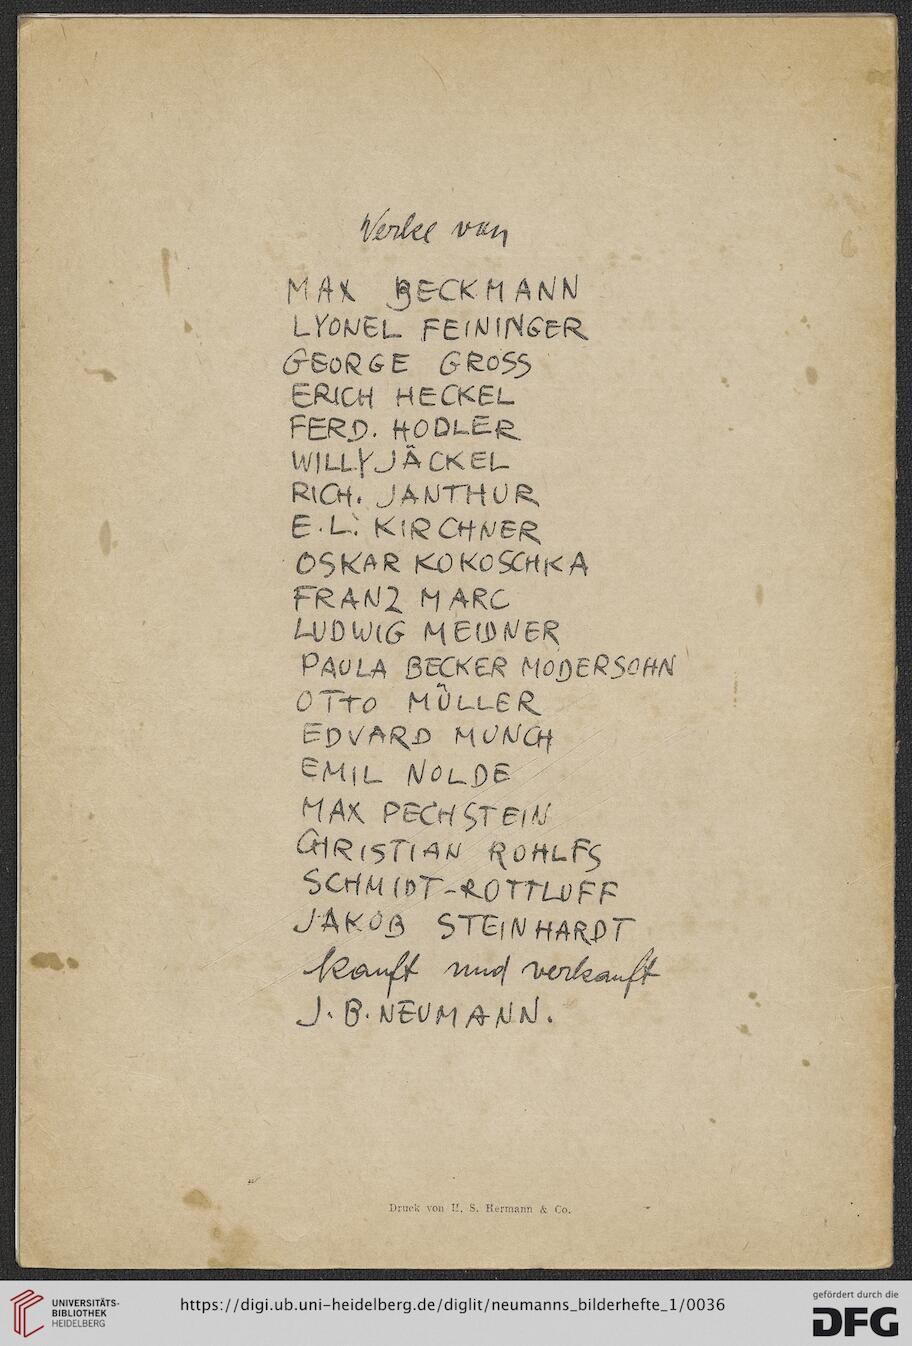 Werke von
MAX BECKMANN
LYONEL FEININGER
GEORGE GROSS
ERICH HECKEL
FERD. HODLER
WILLY JÄCKEL
RICH. JANTHUR
E. L. KIRCHNER
OSKAR KOKOSCHKA
FRANZ MARC
LUDWIG MEIDNER
PAULA BECKER MODERSOHN
OTTO MÜLLER
EDVARD MUNCH
EMIL NOLDE
MAX PECHSTEIN
CHRISTIAN ROHLFS
SCHMIDT-ROTTLUFF
JAKOB STEINHARDT
kauft und verkauft
J. B. NEUMANN.
Druck von H. S. Hermann & Co.
UNIVERSITÄTS-
BIBLIOTHEK
HEIDELBERG
https://digi.ub.uni-heidelberg.de/diglit/neumanns_bilderhefte_1/0036
gefördert durch die
DFG